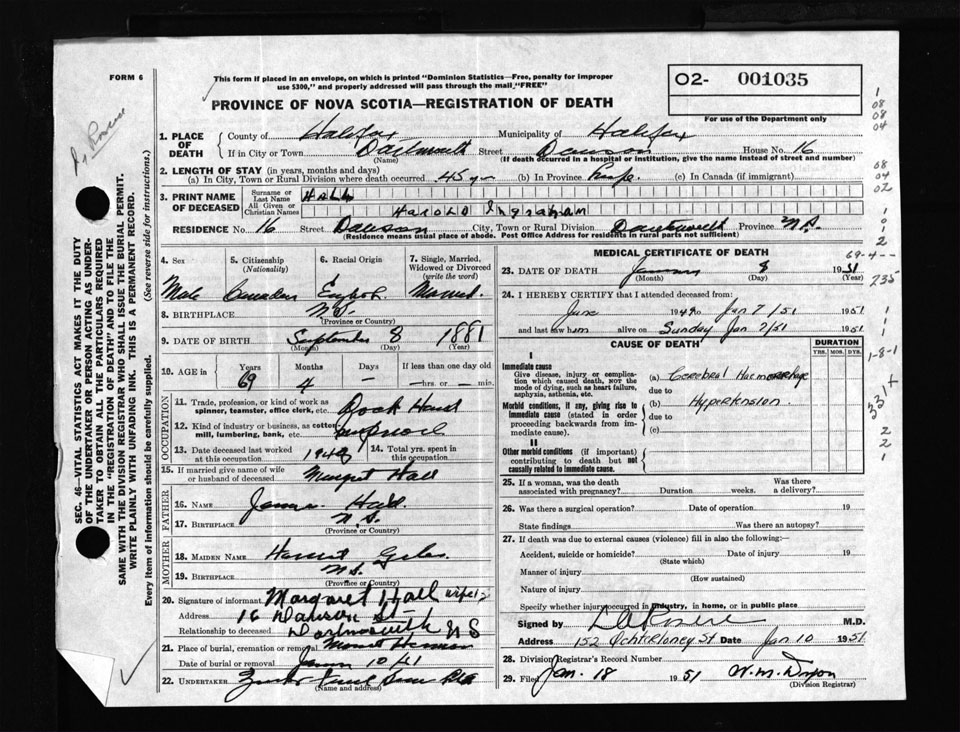 FORM 6
This form if placed in an envelope, on which is printed "Dominion Statistics—Free, penalty for improper
use $300," and properly addressed will pass through the mail "FREE"
O2- 001035
For use of the Department only
PROVINCE OF NOVA SCOTIA—REGISTRATION OF DEATH
1. PLACE OF DEATH
County of Halifax Municipality of Halifax
If in City or Town Dartmouth Street Dawson House No. 16
(Name) (If death occurred in a hospital or institution, give the name instead of street and number)
2. LENGTH OF STAY (in years, months and days)
(a) In City, Town or Rural Division where death occurred 45 yr (b) In Province Life (c) In Canada (if immigrant)
3. PRINT NAME OF DECEASED
Surname or Last Name HALL
All Given or Christian Names Harold Ingraham
RESIDENCE No. 16 Street Dawson City, Town or Rural Division Dartmouth Province N.S.
(Residence means usual place of abode. Post Office Address for residents in rural parts not sufficient)
4. Sex 5. Citizenship (Nationality) 6. Racial Origin 7. Single, Married, Widowed or Divorced (write the word)
Male Canadian English Married
8. BIRTHPLACE N.S.
(Province or Country)
9. DATE OF BIRTH September 8 1881
(Month) (Day) (Year)
10. AGE in Years Months Days If less than one day old
69 4 – —hrs. or — min.
OCCUPATION
11. Trade, profession, or kind of work as spinner, teamster, office clerk, etc. Dock Hand
12. Kind of industry or business, as cotton mill, lumbering, bank, etc.
13. Date deceased last worked at this occupation 14. Total yrs. spent in this occupation
15. If married give name of wife or husband of deceased Margaret Hall
FATHER
16. NAME James Hall
17. BIRTHPLACE N.S.
(Province or Country)
MOTHER
18. MAIDEN NAME Harriet
19. BIRTHPLACE N.S.
(Province or Country)
20. Signature of informant Margaret Hall wife
Address 16 Dawson St
Relationship to deceased Dartmouth N S
21. Place of burial, cremation or removal Mount Hermon
Date of burial or removal
22. UNDERTAKER
(Name and address)
MEDICAL CERTIFICATE OF DEATH
23. DATE OF DEATH January 8 1951
(Month) (Day) (Year)
24. I HEREBY CERTIFY that I attended deceased from:
June 1949 to Jan 7/51 1951
and last saw him alive on Sunday Jan 7/51 1951
CAUSE OF DEATH DURATION
YRS. MOS. DYS.
I
Immediate cause
Give disease, injury or complication which caused death, NOT the mode of dying, such as heart failure, asphyxia, asthenia, etc.
(a) Cerebral Haemorrhage
due to
Morbid conditions, if any, giving rise to immediate cause (stated in order proceeding backwards from immediate cause).
(b) Hypertension
due to
(c)
II
Other morbid conditions (if important) contributing to death but not causally related to immediate cause.
25. If a woman, was the death associated with pregnancy? Duration weeks. Was there a delivery?
26. Was there a surgical operation? Date of operation 19
State findings Was there an autopsy?
27. If death was due to external causes (violence) fill in also the following:—
Accident, suicide or homicide? Date of injury 19
(State which)
Manner of injury
(How sustained)
Nature of injury
Specify whether injury occurred in industry, in home, or in public place
Signed by M.D.
Address 152 Ochterloney St Date Jan 10 1951
28. Division Registrar's Record Number
29. Filed Jan. 18 1951 W. M. Dixon
(Division Registrar)
SEC. 46—VITAL STATISTICS ACT MAKES IT THE DUTY
OF THE UNDERTAKER OR PERSON ACTING AS UNDERTAKER
TO OBTAIN ALL THE PARTICULARS REQUIRED
IN THE "REGISTRATION OF DEATH" AND TO FILE THE
SAME WITH THE DIVISION REGISTRAR WHO SHALL ISSUE THE BURIAL PERMIT.
WRITE PLAINLY WITH UNFADING INK. THIS IS A PERMANENT RECORD.
Every item of information should be carefully supplied. (See reverse side for instructions.)
1
08
08
04
08
04
02
1
0
1
2
69-4--
235
1
1
1-8-1
2
2
1